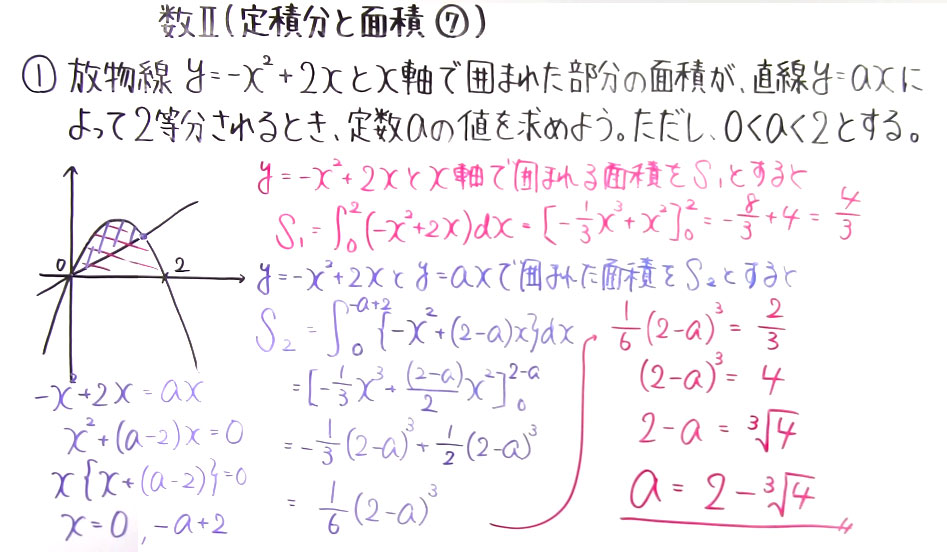 数Ⅱ(定積分と面積 ⑦)
① 放物線 y=-x²+2xとx軸で囲まれた部分の面積が、直線y=axに
よって2等分されるとき、定数aの値を求めよう。ただし、0<a<2とする。
y=-x²+2xとx軸で囲まれる面積をS₁とすると
S₁=∫₀²(-x²+2x)dx=[-1/3x³+x²]₀²=-8/3+4=4/3
0
2
y=-x²+2xとy=axで囲まれた面積をS₂とすると
S₂=∫₀^(-a+2){-x²+(2-a)x}dx
=[-1/3x³+(2-a)/2x²]₀^(2-a)
=-1/3(2-a)³+1/2(2-a)³
=1/6(2-a)³
-x²+2x=ax
x²+(a-2)x=0
x{x+(a-2)}=0
x=0,-a+2
1/6(2-a)³=2/3
(2-a)³=4
2-a=³√4
a=2-³√4